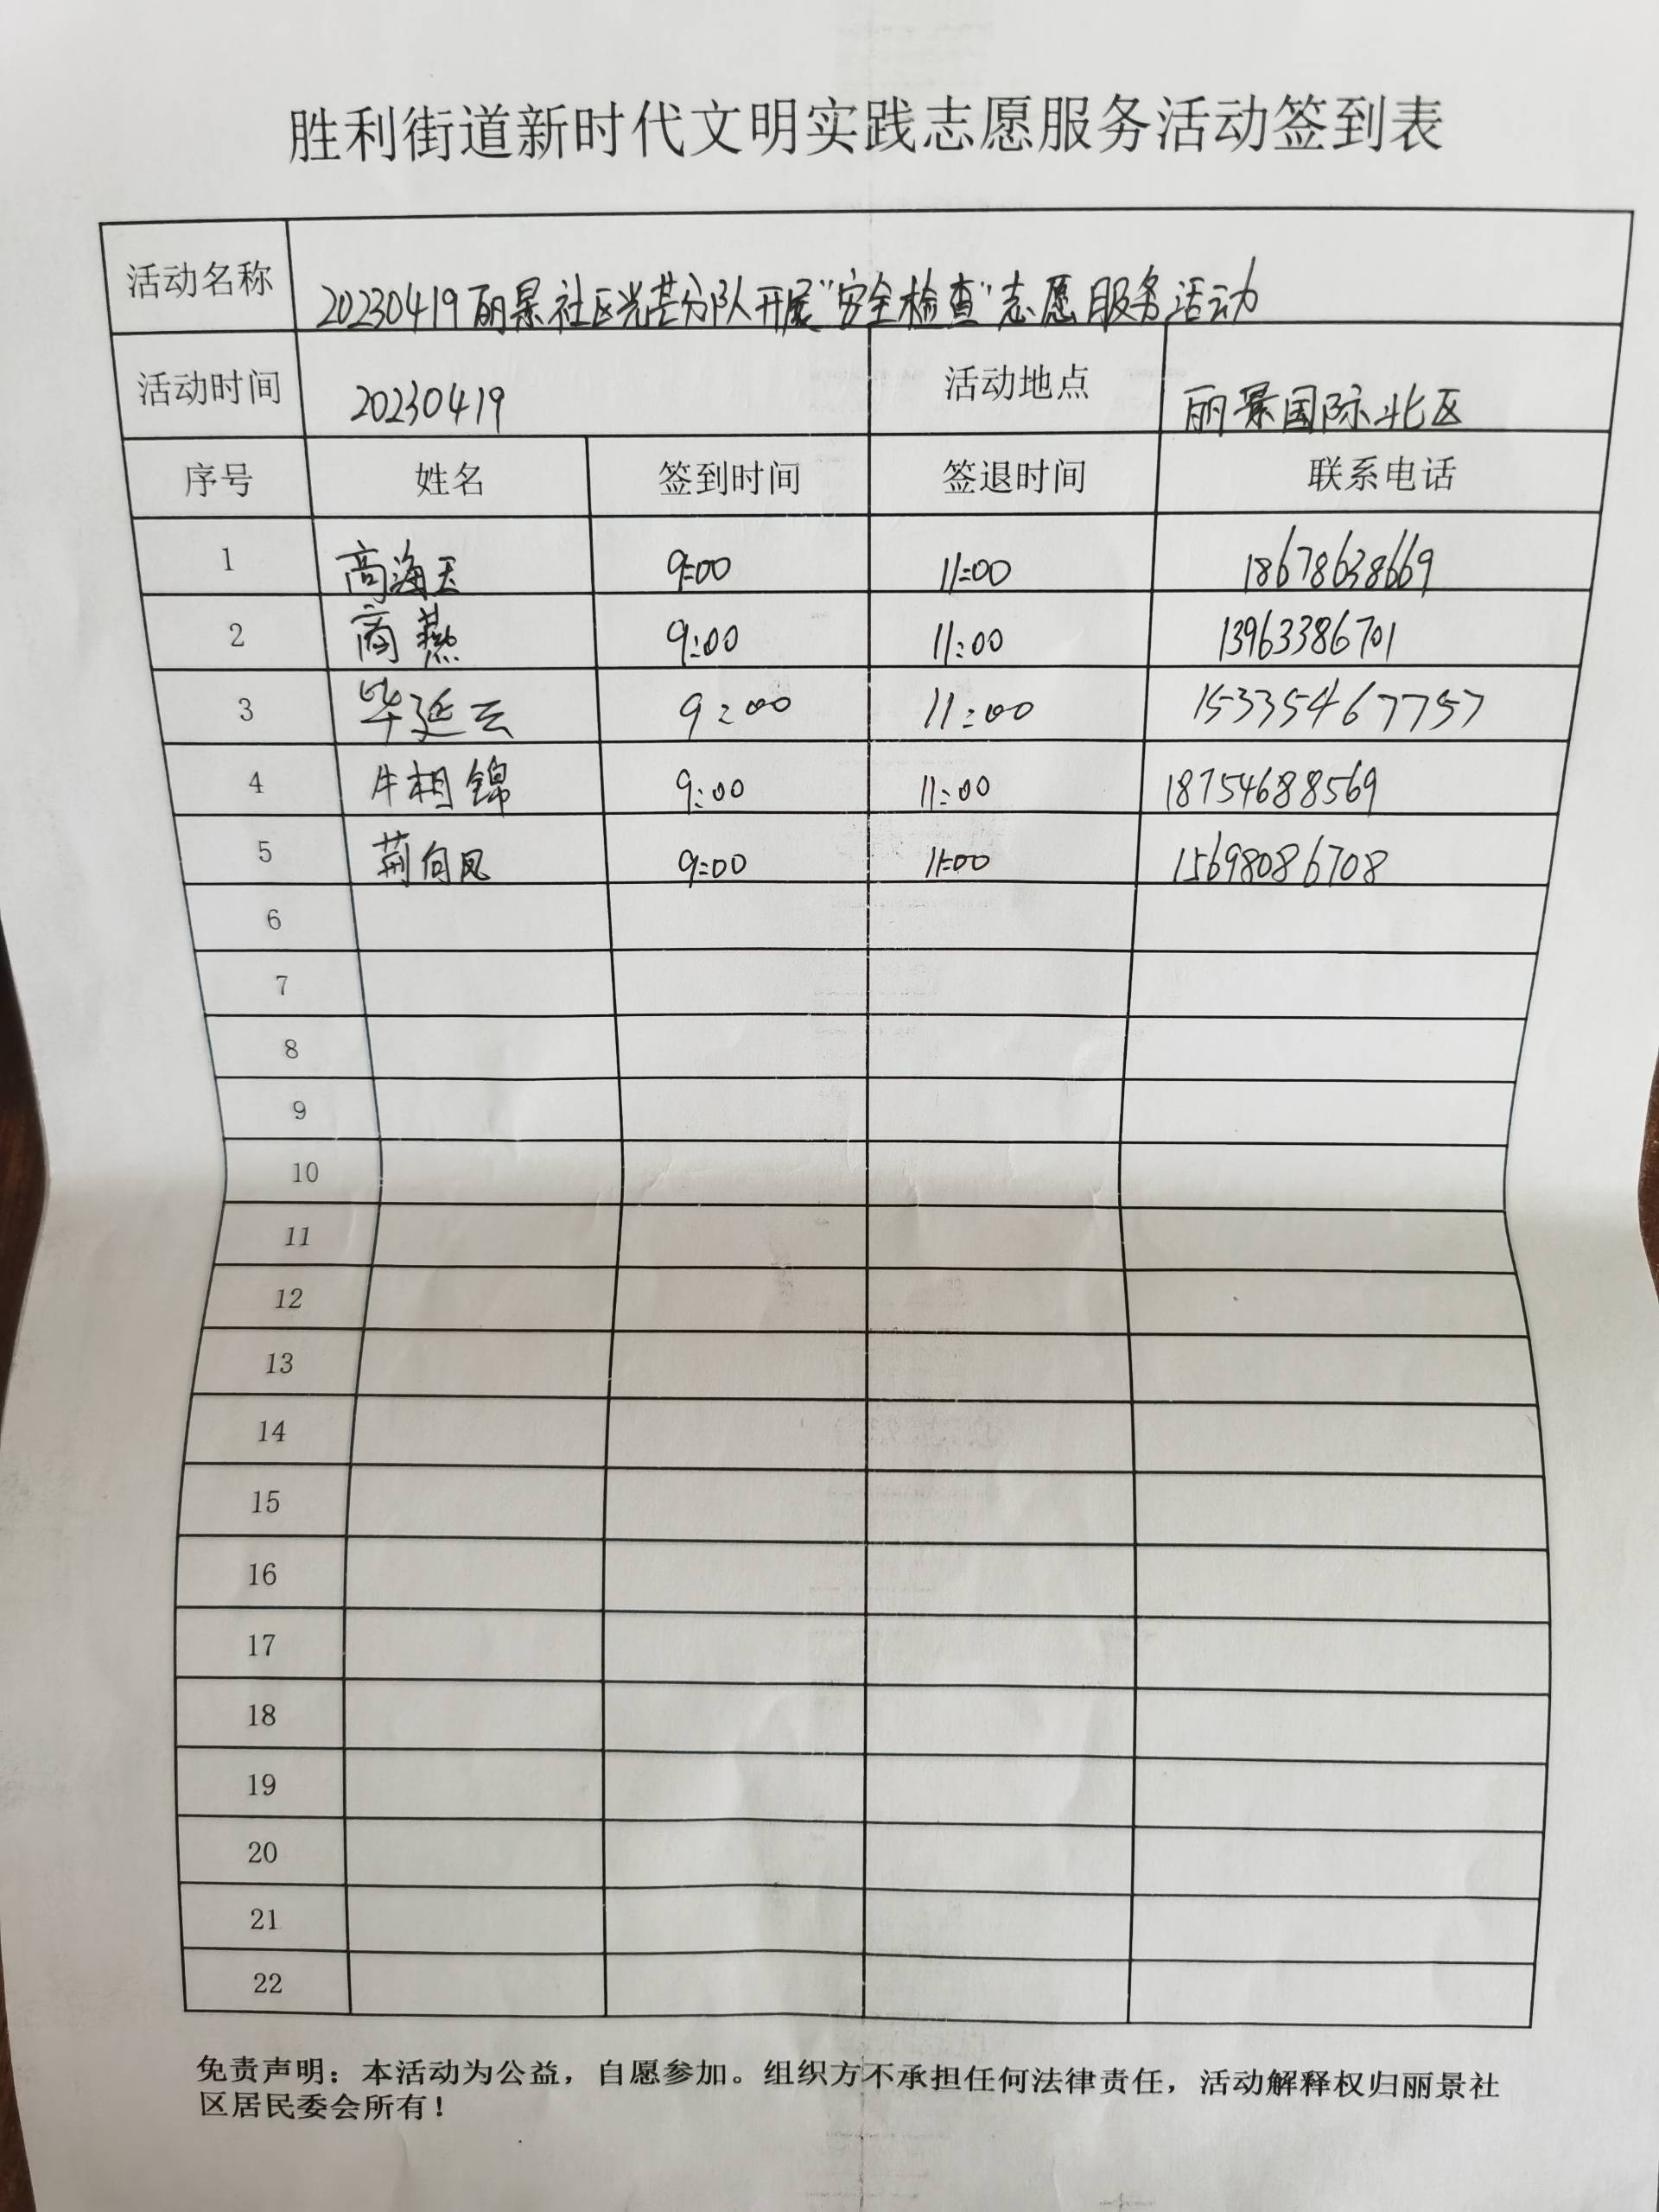 胜利街道新时代文明实践志愿服务活动签到表
活动名称 20230419丽景社区光芒分队开展“安全检查”志愿服务活动
活动时间 20230419 活动地点 丽景国际北区
序号 姓名 签到时间 签退时间 联系电话
1 高海玉 9:00 11:00 18678638669
2 商燕 9:00 11:00 13963386701
3 毕延云 9:00 11:00 15335467757
4 牛相锦 9:00 11:00 18754688569
5 荆向凤 9:00 11:00 15698086708
6
7
8
9
10
11
12
13
14
15
16
17
18
19
20
21
22
免责声明：本活动为公益，自愿参加。组织方不承担任何法律责任，活动解释权归丽景社
区居民委会所有！